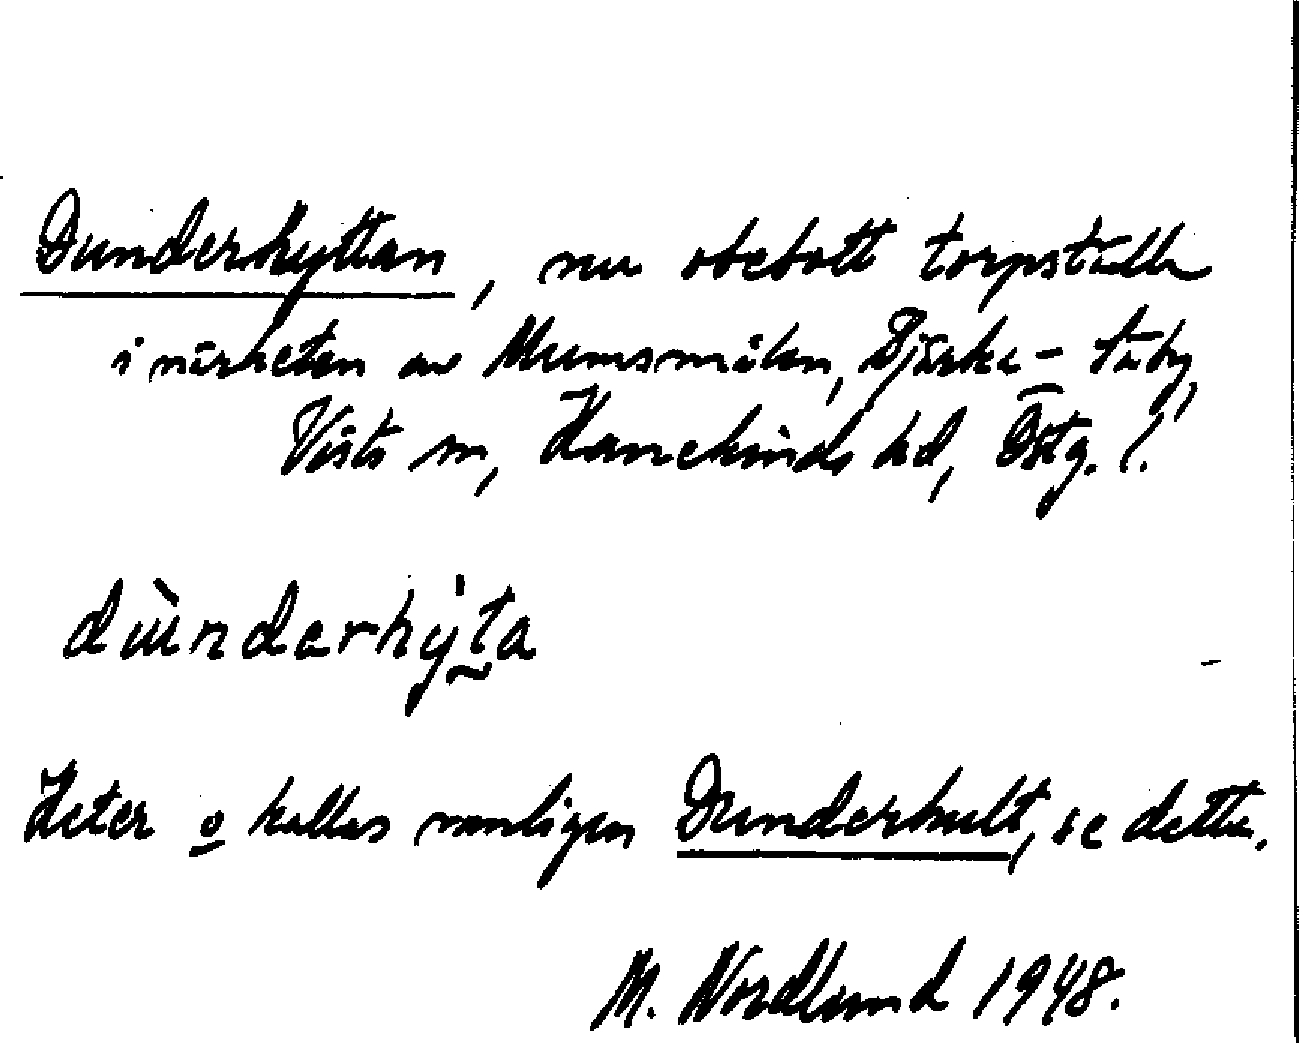 Dunderhyttan, nu obebott torpställe
i närheten av Mumsmålen, Bjärka-Säby,
Vists sn, Hanekinds hd, Östg. l.
dùnderhy̍ta
Heter o kallas vanligen Dunderhult, se detta.
M. Nordlund 1948.